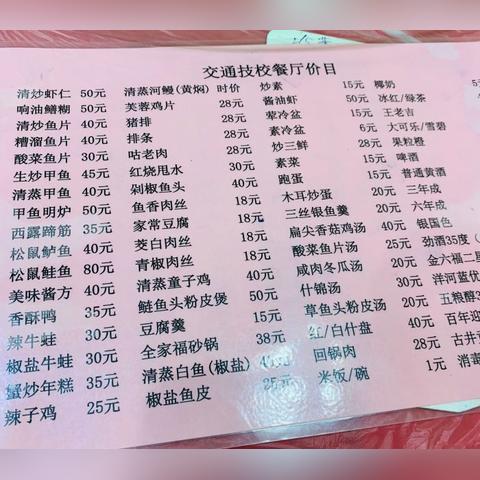 交通技校餐厅价目
清炒虾仁 50元
响油鳝糊 50元
清炒鱼片 40元
糟溜鱼片 40元
酸菜鱼片 30元
生炒甲鱼 45元
清蒸甲鱼 40元
甲鱼明炉 50元
西露蹄筋 35元
松鼠鲈鱼 40元
松鼠鮭鱼 80元
美味酱方 40元
香酥鸭 35元
辣牛蛙 30元
椒盐牛蛙 30元
蟹炒年糕 35元
辣子鸡 25元
清蒸河鳗(黄焖) 时价
芙蓉鸡片 28元
猪排 28元
排条 28元
咕老肉 28元
红烧甩水 30元
剁椒鱼头 40元
鱼香肉丝 18元
家常豆腐 18元
茭白肉丝 18元
青椒肉丝 18元
清蒸童子鸡 40元
鲢鱼头粉皮煲 50元
豆腐羹 15元
全家福砂锅 38元
清蒸白鱼(椒盐)
椒盐鱼皮 25元
炒素 15元
酱油虾 50元
荤冷盆 15元
素冷盆 6元
炒三鲜 28元
素菜 15元
跑蛋 15元
木耳炒蛋 20元
三丝银鱼羹 20元
扁尖香菇鸡汤 40元
酸菜鱼片汤 20元
咸肉冬瓜汤 20元
什锦汤 20元
草鱼头粉皮汤 20元
红/白什盘 40元
回锅肉 28元
米饭/碗 1元
椰奶 5
冰红/绿茶
王老吉
大可乐/雪碧
果粒橙
啤酒
普通黄酒
三年成
六年成
银国色
劲酒35度（
金六福二星
洋河蓝优
五粮醇3
百年迎
古井
消毒